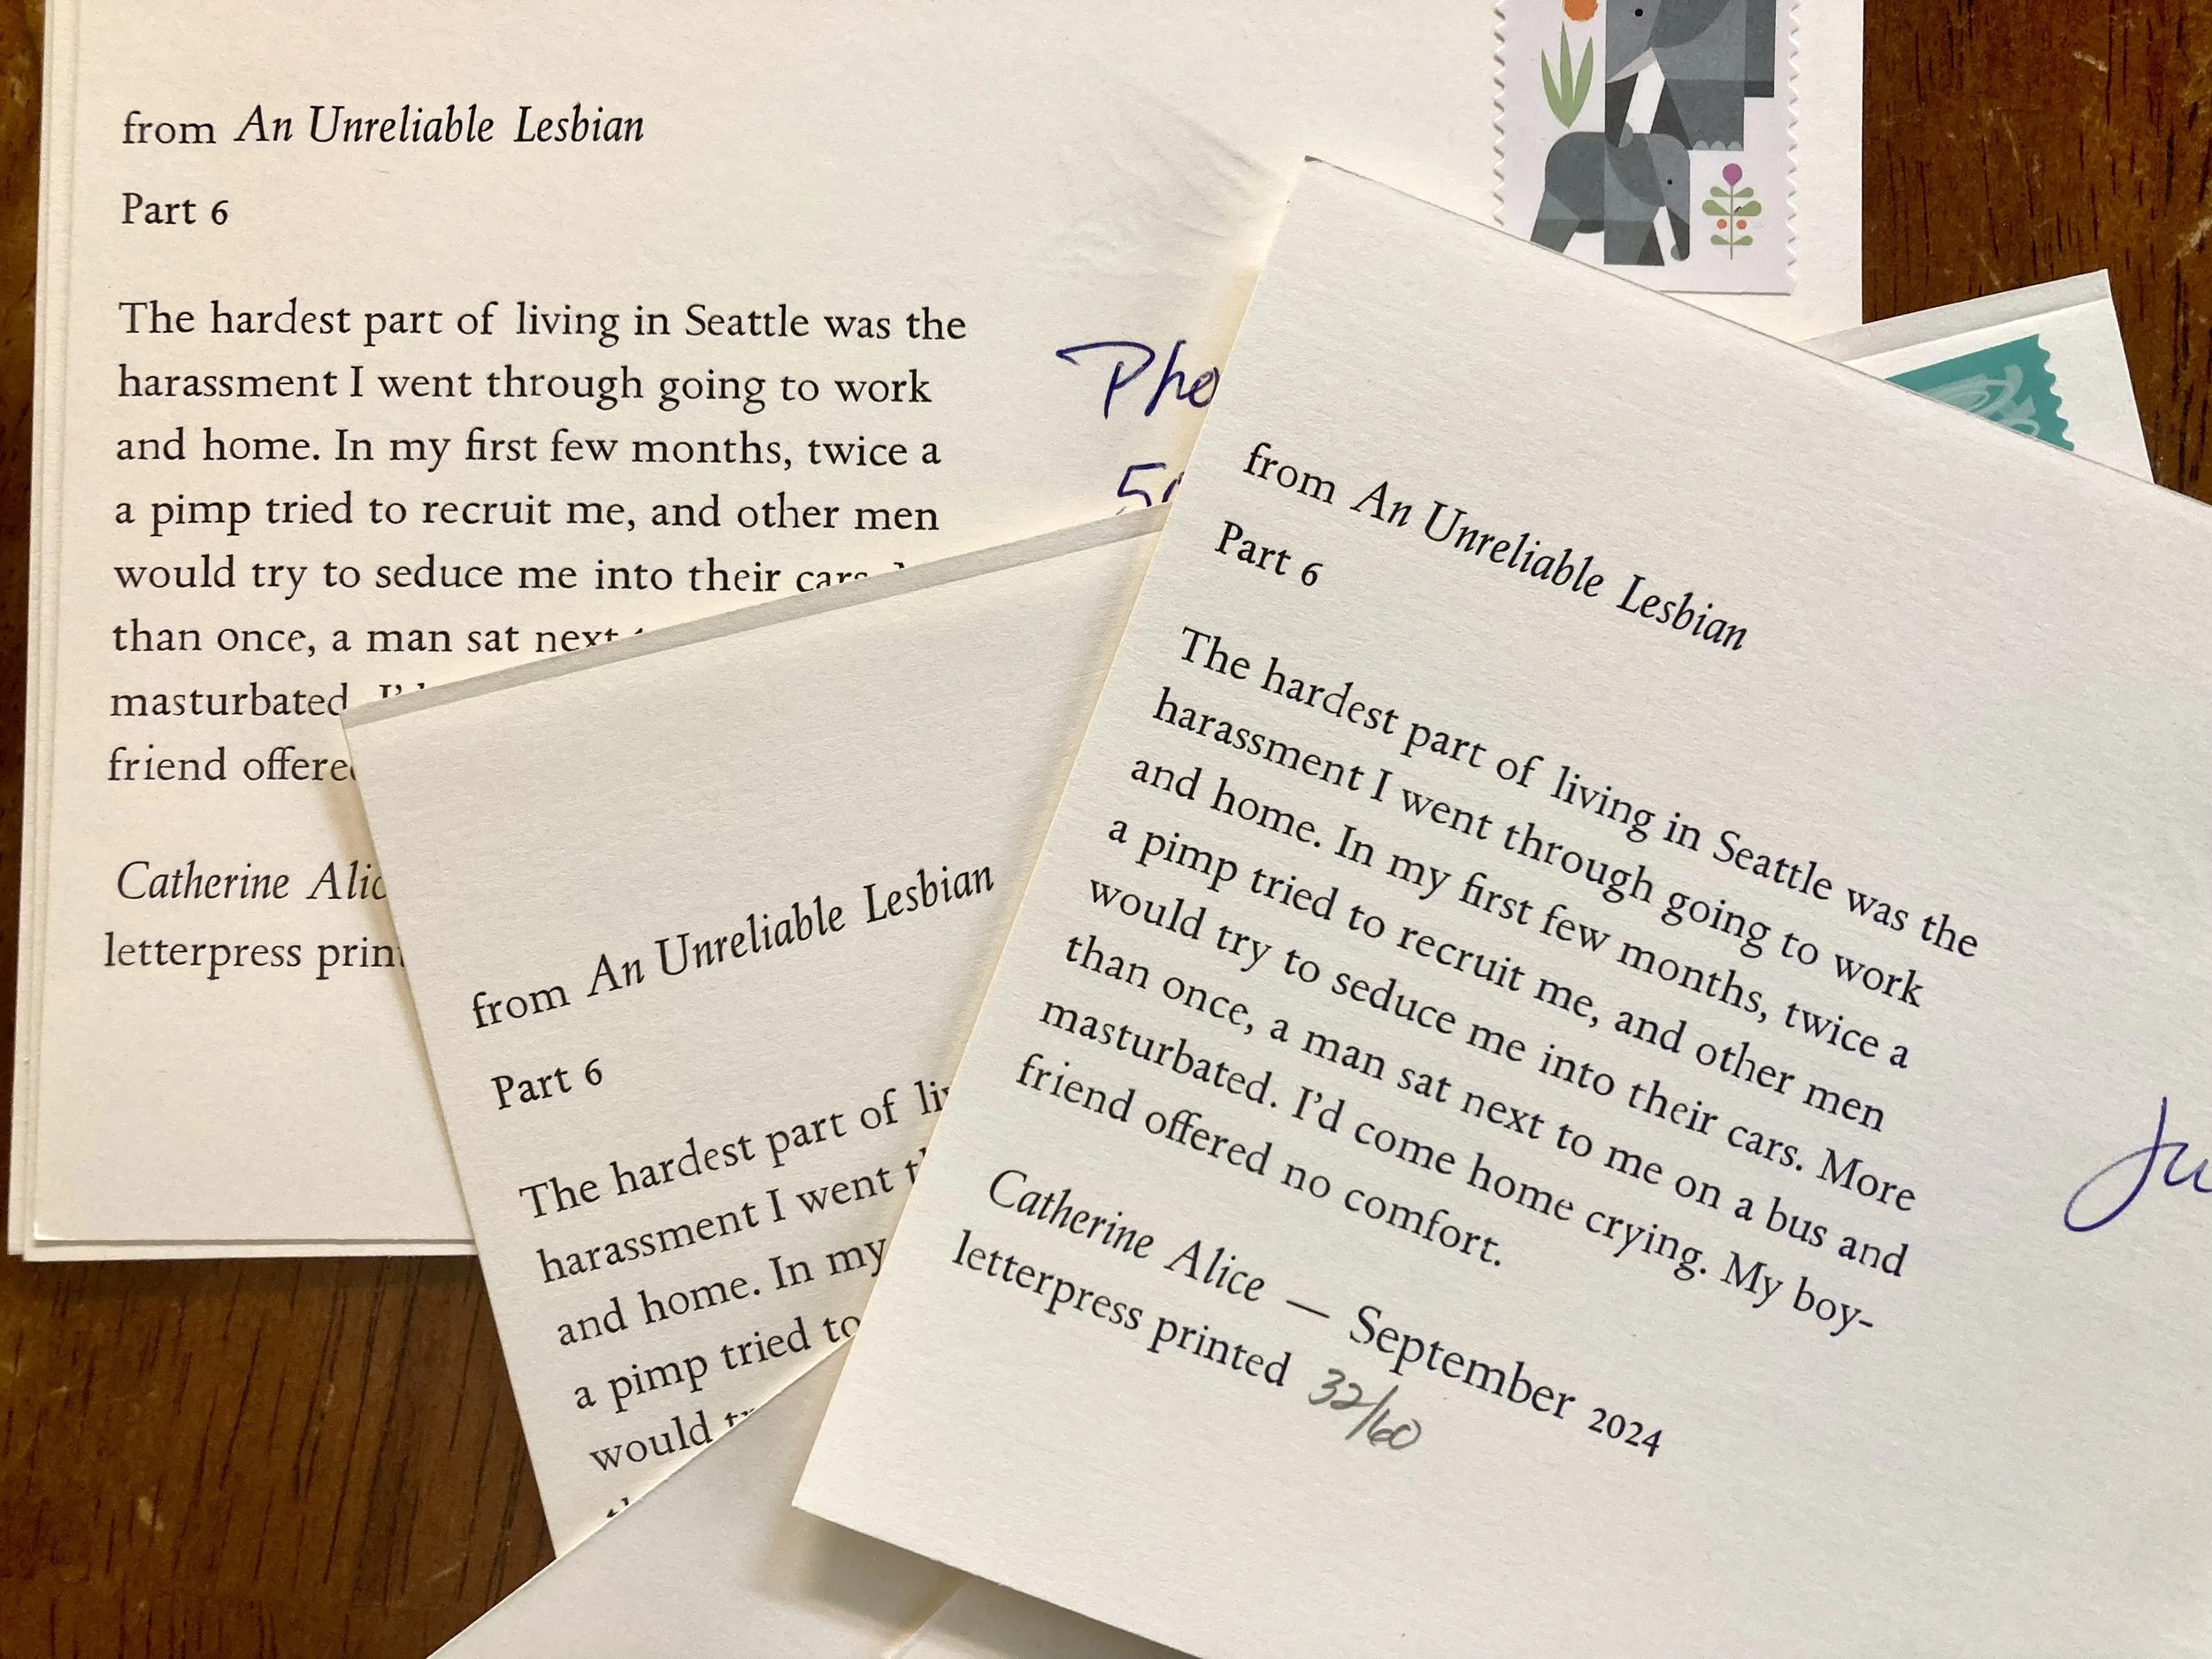 from An Unreliable Lesbian
Part 6
The hardest part of living in Seattle was the
harassment I went through going to work
and home. In my first few months, twice a
a pimp tried to recruit me, and other men
would try to seduce me into their cars.
than once, a man sat next
masturbated. I'd
friend offered
Catherine Alic
letterpress print
Pho
from An Unreliable Lesbian
Part 6
The hardest part of liv
harassment I went th
and home. In my
a pimp tried to
would
from An Unreliable Lesbian
Part 6
The hardest part of living in Seattle was the
harassment I went through going to work
and home. In my first few months, twice a
a pimp tried to recruit me, and other men
would try to seduce me into their cars. More
than once, a man sat next to me on a bus and
masturbated. I'd come home crying. My boy-
friend offered no comfort.
Catherine Alice — September 2024
letterpress printed 32/60
Ju